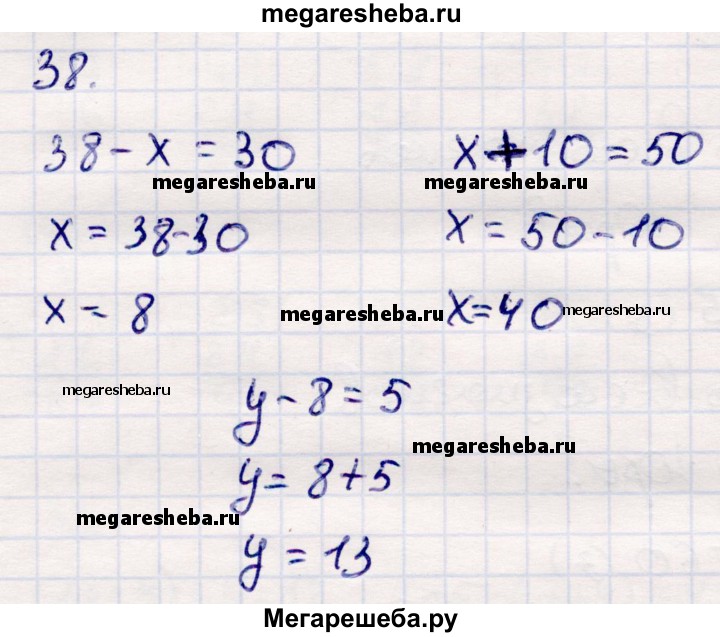 megaresheba.ru
38.
38 - x = 30
x + 10 = 50
megaresheba.ru
megaresheba.ru
x = 38 - 30
x = 50 - 10
x = 8
megaresheba.ru
x = 40
megaresheba.ru
megaresheba.ru
y - 8 = 5
megaresheba.ru
y = 8 + 5
megaresheba.ru
y = 13
Мегарешеба.ру